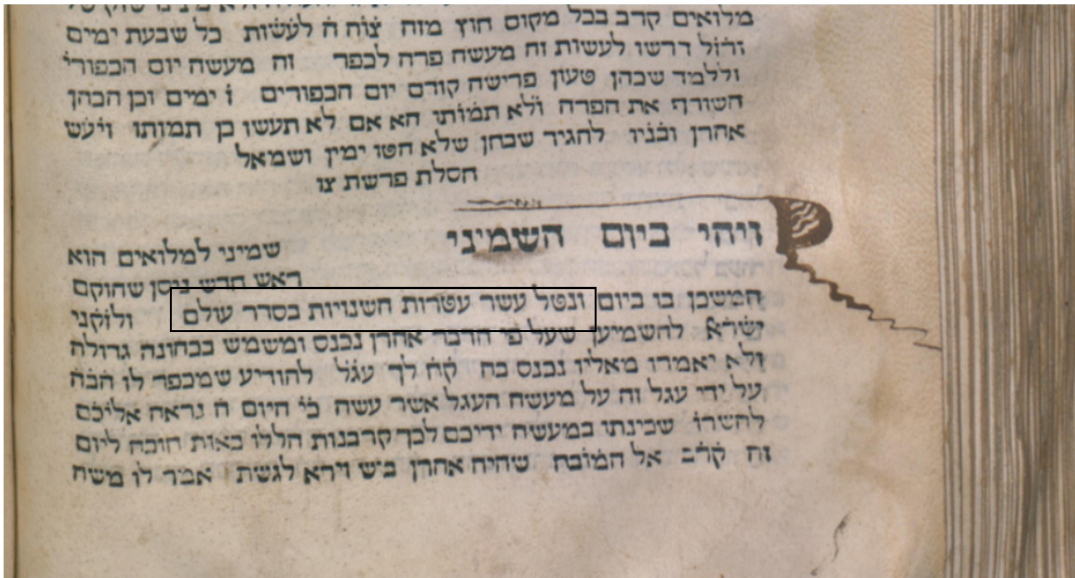 מלואים קרב בכל מקום חוץ מזה צוה ה לעשות כל שבעת ימים
ורז'ל דרשו לעשות זה מעשה פרה לכפר זה מעשה יום הכפורי'
וללמד שכהן טעון פרישה קודם יום הכפורים ז' ימים וכן הכהן
השורף את הפרה ולא תמותו הא אם לא תעשו כן תמותו ויעש
אהרן ובניו להגיד שבחן שלא הטו ימין ושמאל
חסלת פרשת צו
ויהי ביום השמיני
שמיני למלואים הוא
ראש חדש ניסן שהוקם
המשכן בו ביום ונטל עשר עטרות השנויות בסדר עולם ולזקני
ישרא' להשמיען שעל פי הדבר אהרן נכנס ומשמש בכהונה גדולה
ולא יאמרו מאליו נכנס בה קח לך עגל להודיע שמכפר לו הב'ה
על ידי עגל זה על מעשה העגל אשר עשה כי היום ה נראה אליכם
להשרו' שכינתו במעשה ידיכם לכך קרבנות הללו באות חובה ליום
זה קרב אל המזבח שהיה אהרן ביש וירא לגשת אמר לו משה